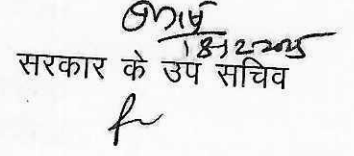 18-12-2025
सरकार के उप सचिव